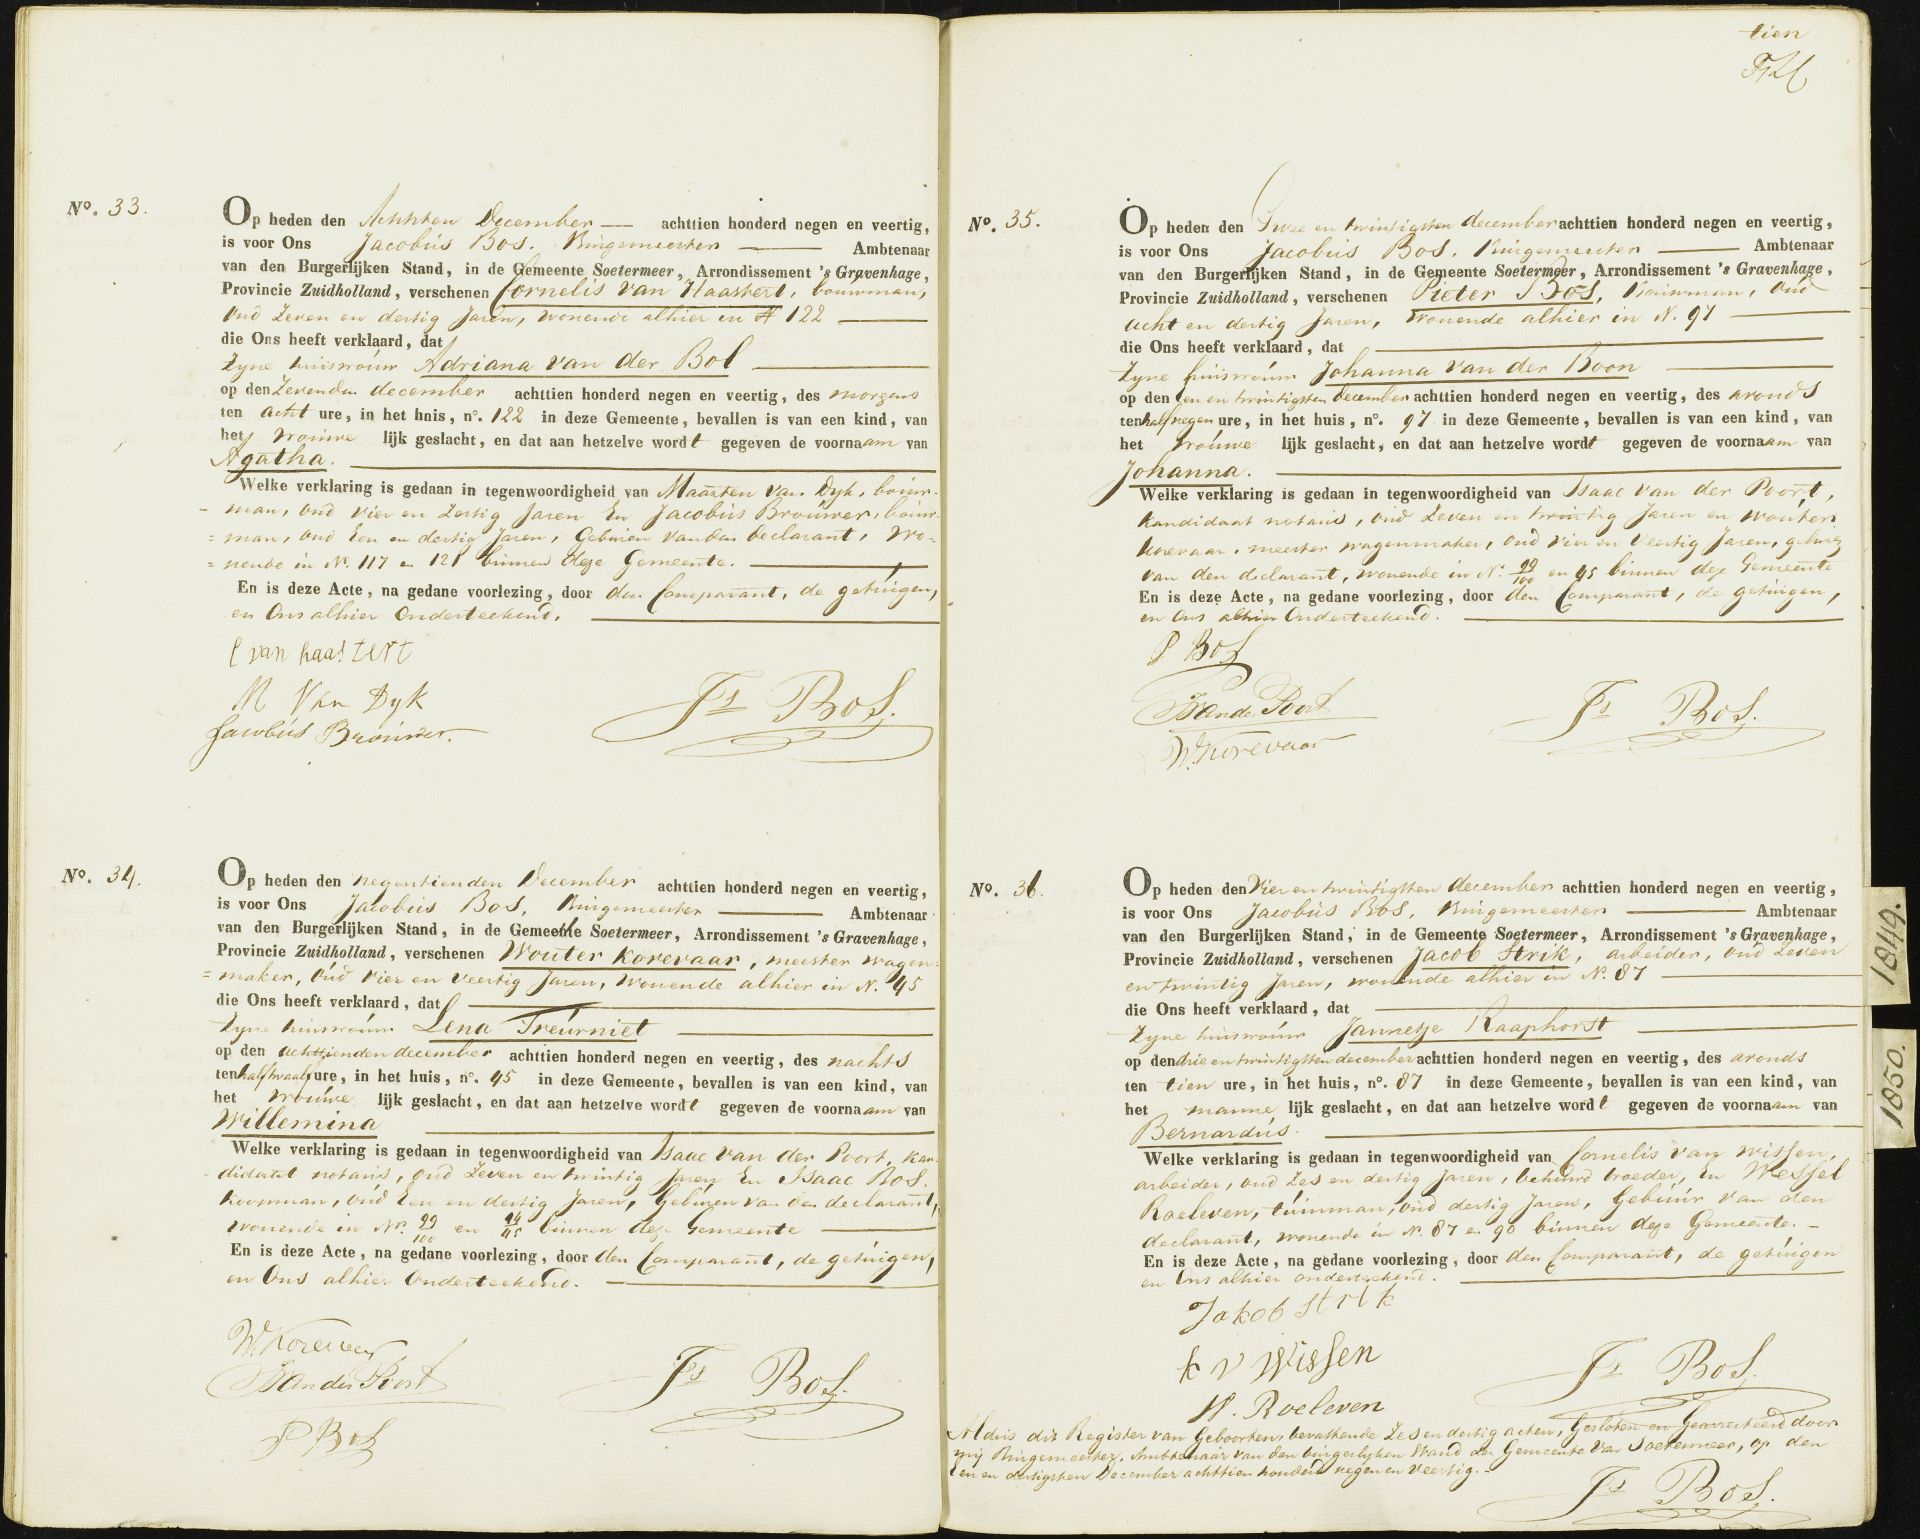 N°. 33.
Op heden den Achtsten December — achttien honderd negen en veertig,
is voor Ons Jacobus Bos. Burgemeester — Ambtenaar
van den Burgerlijken Stand, in de Gemeente Soetermeer, Arrondissement 's Gravenhage,
Provincie Zuidholland, verschenen Cornelis van Haastert, bouwman,
oud Zeven en dertig Jaren, wonende alhier in N 122 —
die Ons heeft verklaard, dat
Zyne huisvrouw Adriana van der Bol —
op den Zevenden december achttien honderd negen en veertig, des morgens
ten acht ure, in het huis, n°. 122 in deze Gemeente, bevallen is van een kind, van
het vrouwe lijk geslacht, en dat aan hetzelve wordt gegeven de voornaam van
Agatha. —
Welke verklaring is gedaan in tegenwoordigheid van Maarten van Dyk, bouw-
- man, oud vier en Zestig Jaren En Jacobus Brouwer, bouw-
= man, oud Een en dertig Jaren, Geburen van den declarant, wo=
= nende in N°. 117 en 121 binnen deze Gemeente. —
En is deze Acte, na gedane voorlezing, door den Comparant, de getuigen,
en Ons alhier Onderteekend. —
C van haastert
M Van Dyk
Jacobus Brouwer.
Js Bos.
N°. 34.
Op heden den negentienden December achttien honderd negen en veertig,
is voor Ons Jacobus Bos, Burgemeester — Ambtenaar
van den Burgerlijken Stand, in de Gemeente Soetermeer, Arrondissement 's Gravenhage,
Provincie Zuidholland, verschenen Wouter Korevaar, meester wagen=
= maker, oud vier en veertig Jaren, Wonende alhier in N. 45
die Ons heeft verklaard, dat —
Zyne huisvrouw Lena Treurniet —
op den achttienden december achttien honderd negen en veertig, des nachts
ten half twaalf ure, in het huis, n°. 45 in deze Gemeente, bevallen is van een kind, van
het vrouwe lijk geslacht, en dat aan hetzelve wordt gegeven de voornaam van
Willemina —
Welke verklaring is gedaan in tegenwoordigheid van Isaac van der Poort, kan-
- didaat notaris, oud Zeven en twintig Jaren En Isaac Bos.
Koopman, oud Een en dertig Jaren, Geburen van den declarant,
wonende in N°. 99/100 en 44/45 binnen deze Gemeente —
En is deze Acte, na gedane voorlezing, door den Comparant, de getuigen,
en Ons alhier Onderteekend. —
W. Korevaar
IvanderPoort
Js Bos.
Bos
tien
N°. 35.
Op heden den Twee en twintigsten december achttien honderd negen en veertig,
is voor Ons Jacobus Bos, Burgemeester — Ambtenaar
van den Burgerlijken Stand, in de Gemeente Soetermeer, Arrondissement 's Gravenhage,
Provincie Zuidholland, verschenen Pieter Bos, Bouwman, Oud
acht en dertig Jaren, wonende alhier in N. 97 —
die Ons heeft verklaard, dat —
Zyne huisvrouw Johanna van der Boon —
op den een en twintigsten december achttien honderd negen en veertig, des avonds
ten half negen ure, in het huis, n°. 97 in deze Gemeente, bevallen is van een kind, van
het vrouwe lijk geslacht, en dat aan hetzelve wordt gegeven de voornaam van
Johanna. —
Welke verklaring is gedaan in tegenwoordigheid van Isaac van der Poort,
kandidaat notaris, oud Zeven en twintig Jaren en Wouter
Korevaar, meester wagenmaker, Oud Vier en Veertig Jaren, geburen
van den declarant, wonende in N°. 99/100 en 45 binnen deze Gemeente
En is deze Acte, na gedane voorlezing, door den Comparant, de getuigen,
en Ons alhier Onderteekend. —
P Bos
IvanderPoort
Js Bos.
W. Korevaar
N°. 36.
Op heden den Vier en twintigsten december achttien honderd negen en veertig,
is voor Ons Jacobus Bos, Burgemeester — Ambtenaar
van den Burgerlijken Stand, in de Gemeente Soetermeer, Arrondissement 's Gravenhage,
Provincie Zuidholland, verschenen Jacob Strik, arbeider, oud Zeven
en twintig Jaren, wonende alhier in N°. 87 —
die Ons heeft verklaard, dat —
Zyne huisvrouw Jannetje Raaphorst —
op den drie en twintigsten december achttien honderd negen en veertig, des avonds
ten tien ure, in het huis, n°. 87 in deze Gemeente, bevallen is van een kind, van
het manne lijk geslacht, en dat aan hetzelve wordt gegeven de voornaam van
Bernardus. —
Welke verklaring is gedaan in tegenwoordigheid van Cornelis van Wissen,
arbeider, oud Zes en dertig Jaren, behuwd broeder, En Wessel
Roeleven, tuinman, oud dertig Jaren, Gebuur van den
declarant, wonende in N°. 87 en 90 binnen deze Gemeente. —
En is deze Acte, na gedane voorlezing, door den Comparant, de getuigen
en Ons alhier onderteekend. —
Jakob strik
k v Wissen
Js Bos.
W. Roeleven
Aldus dit Register van Geboorten bevattende Zes en dertig acten, Gesloten en Gearresteerd door
mij Burgemeester, Ambtenaar van den burgerlyken Stand der Gemeente van Soetermeer, op den
Een en dertigsten December achttien honderd negen en veertig. —
Js Bos.
1849.
1850.